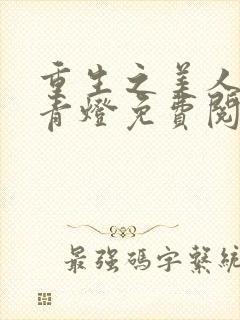 重生之美人
青燈免費閱
最強碼字繫統